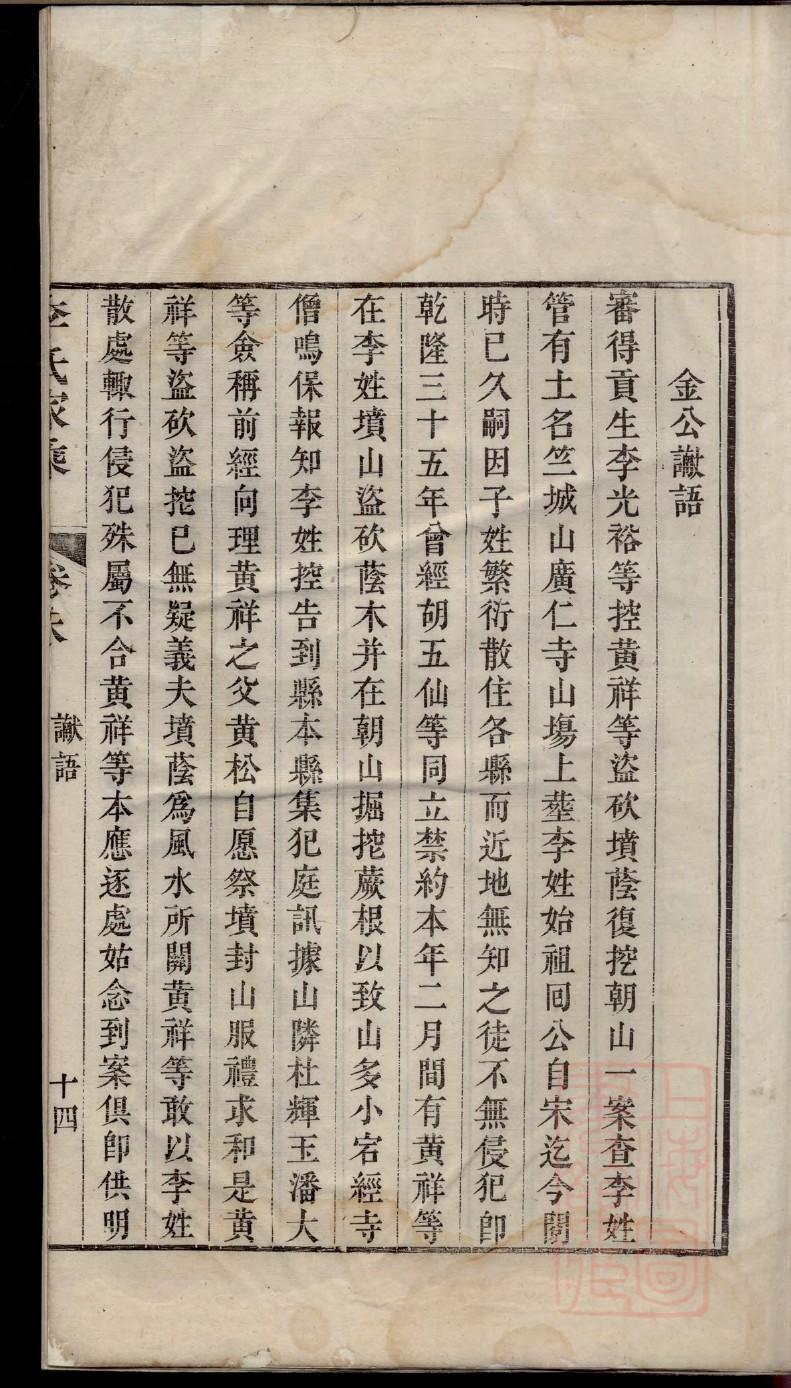 金公讞語
審得貢生李光裕等控黃祥等盜砍墳蔭復挖朝山一案查李姓
管有土名竺城山廣仁寺山塲上塟李姓始祖同公自宋迄今閱
時已久嗣因子姓繁衍散住各縣而近地無知之徒不無侵犯卽
乾隆三十五年曾經胡五仙等同立禁約本年二月間有黃祥等
在李姓墳山盜砍蔭木并在朝山掘挖蕨根以致山多小宕經寺
僧鳴保報知李姓控告到縣本縣集犯庭訊據山隣杜輝玉潘大
等僉稱前經向理黃祥之父黃松自愿祭墳封山服禮求和是黃
祥等盜砍盜挖已無疑義夫墳蔭爲風水所關黃祥等敢以李姓
散處輙行侵犯殊屬不合黃祥等本應逐處姑念到案俱卽供明
李氏家乘
卷末
讞語
十四